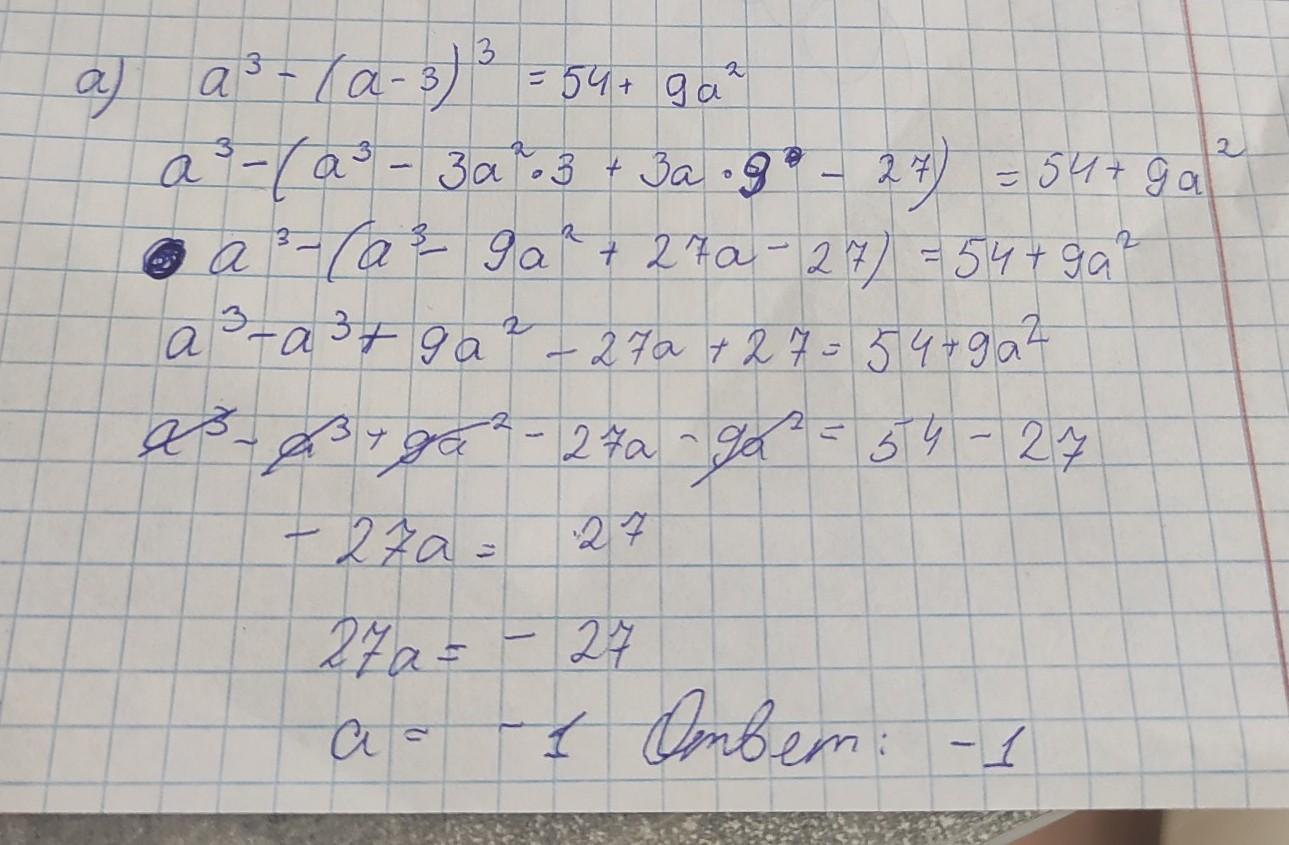 а) a³ - (a - 3)³ = 54 + 9a²
a³ - (a³ - 3a² · 3 + 3a · 9 - 27) = 54 + 9a²
a³ - (a³ - 9a² + 27a - 27) = 54 + 9a²
a³ - a³ + 9a² - 27a + 27 = 54 + 9a²
a³ - a³ + 9a² - 27a - 9a² = 54 - 27
- 27a = 27
27a = - 27
a = - 1 Ответ: - 1